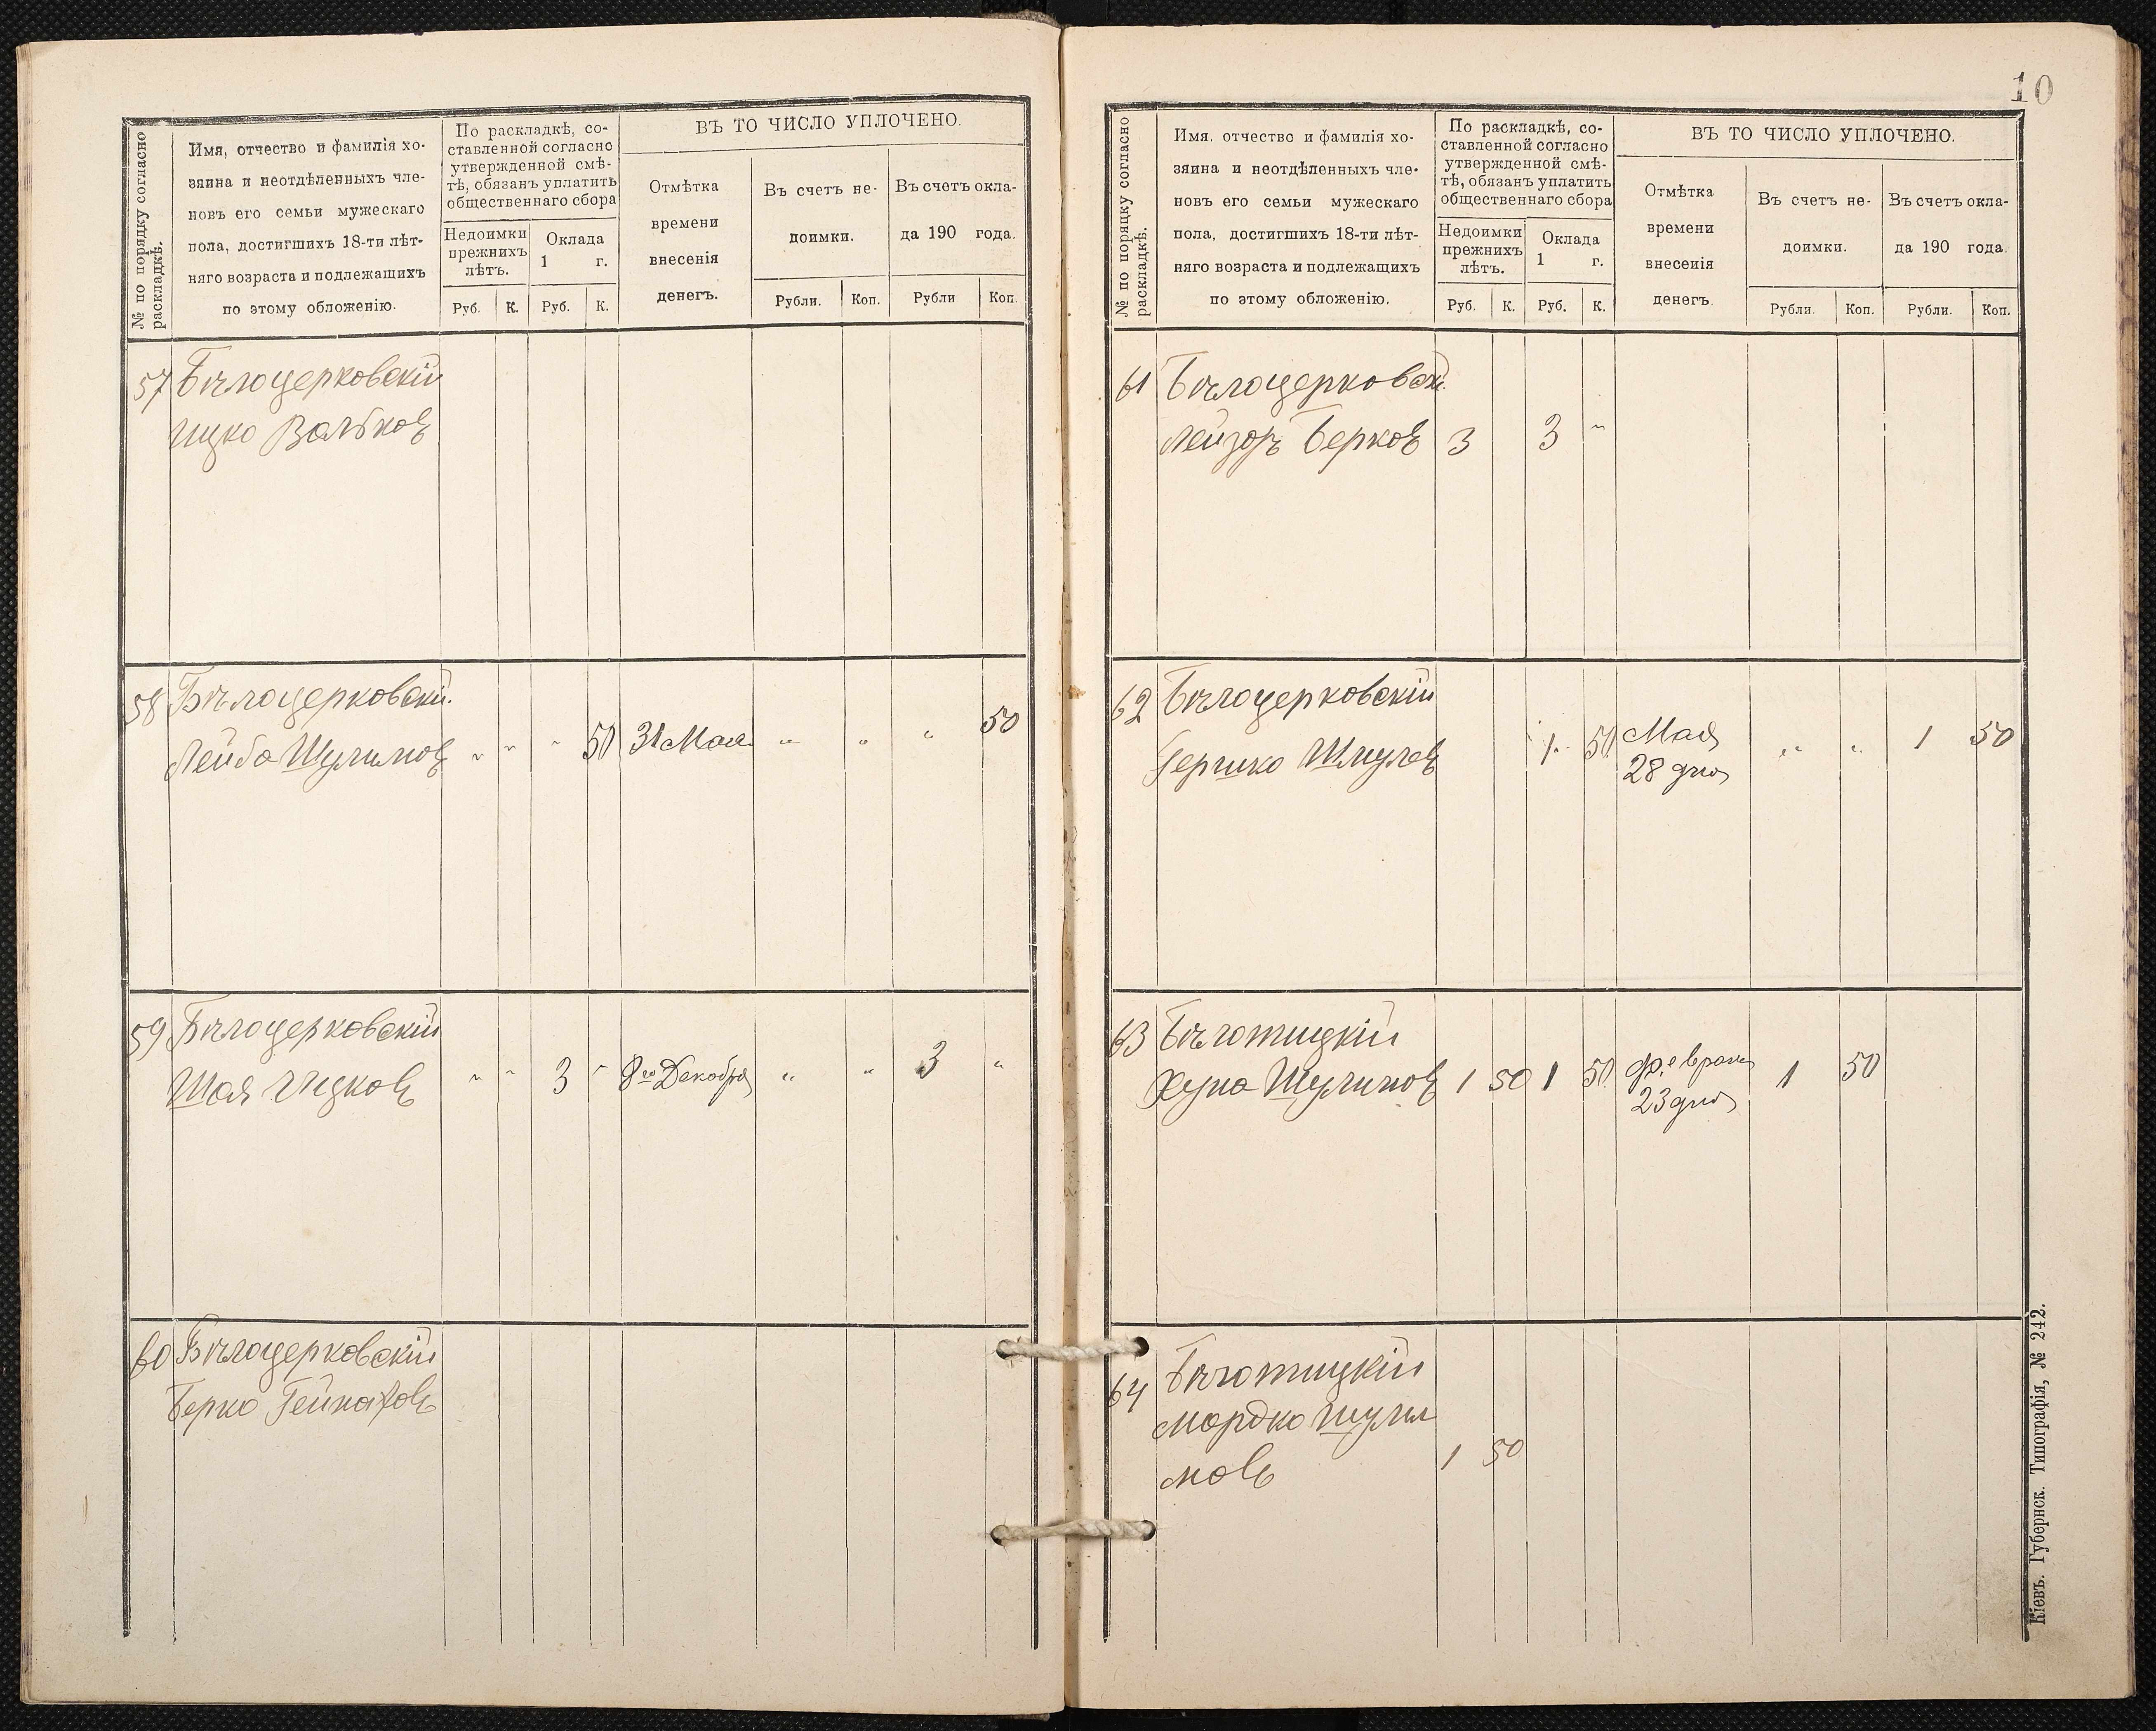 № по порядку согласно
раскладкѣ.
Имя, отчество и фамилія хо-
зяина и неотдѣленныхъ чле-
новъ его семьи мужескаго
пола, достигшихъ 18-ти лѣт-
няго возраста и подлежащихъ
по этому обложенію.
По раскладкѣ, со-
ставленной согласно
утвержденной смѣ-
тѣ, обязанъ уплатить
общественнаго сбора
Недоимки
прежнихъ
лѣтъ.
Оклада
1 г.
Руб. К. Руб. К.
ВЪ ТО ЧИСЛО УПЛОЧЕНО.
Отмѣтка
времени
внесенія
денегъ.
Въ счетъ не-
доимки.
Въ счетъ окла-
да 190 года.
Рубли. Коп. Рубли Коп.
57 Бѣлоцерковскій
Ицко Вольковъ
58 Бѣлоцерковскій.
Лейба Шулимовъ " " " 50 31 Мая " " " 50
59 Бѣлоцерковскій
Шая Ицковъ " " 3 " 8го Декабря " " 3 "
60 Бѣлоцерковскій
Берко
10
№ по порядку согласно
раскладкѣ.
Имя. отчество и фамилія хо-
зяина и неотдѣленныхъ чле-
новъ его семьи мужескаго
пола, достигшихъ 18-ти лѣт-
няго возраста и подлежащихъ
по этому обложенію.
По раскладкѣ, со-
ставленной согласно
утвержденной смѣ-
тѣ, обязанъ уплатить
общественнаго сбора
Недоимки
прежнихъ
лѣтъ.
Оклада
1 г.
Руб. К. Руб. К.
ВЪ ТО ЧИСЛО УПЛОЧЕНО.
Отмѣтка
времени
внесенія
денегъ.
Въ счетъ не-
доимки.
Въ счетъ окла-
да 190 года.
Рубли. Коп. Рубли. Коп.
61 Бѣлоцерковскі.
Лейзоръ Берковъ 3 3 "
62 Бѣлоцерковскій
Гершко Шмулевъ 1 50 Мая 28 дня " " 1 50
63 Бѣлотицкій
Хуна Шулимовъ 1 50 1 50 февраля 23 дня 1 50
64 Бѣлотицкій
Мордко Шули
мовъ 1 50
Кіевъ. Губернск. Типографія, № 242.